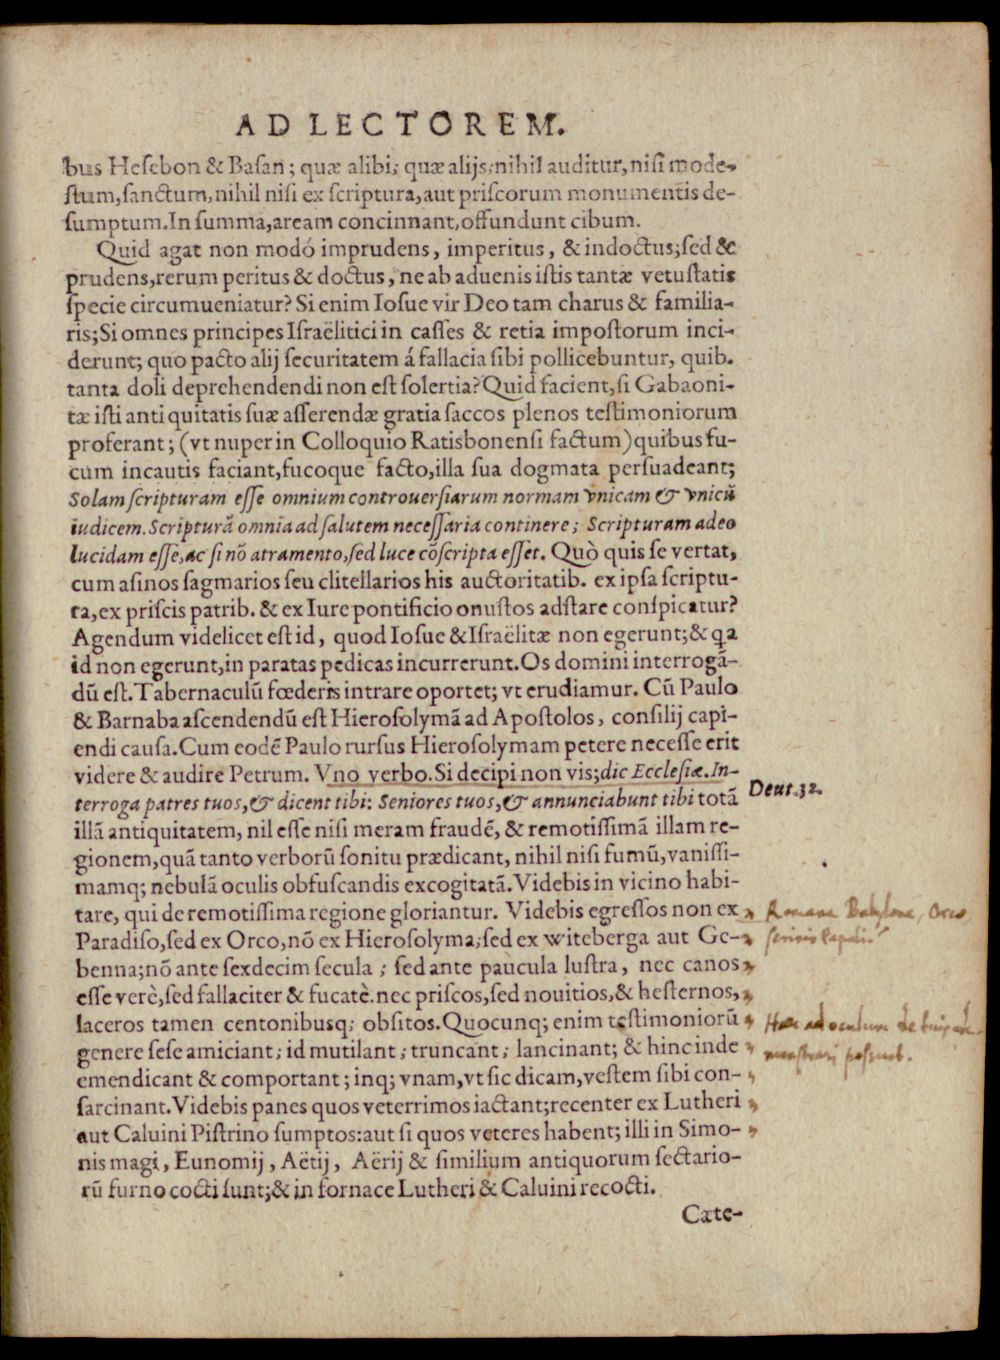 AD LECTOREM.
bus Hesebon & Basan; quæ alibi; quæ alijs; nihil auditur, nisi mode-
stum, sanctum, nihil nisi ex scriptura, aut priscorum monumentis de-
sumptum. In summa, aream concinnant, offundunt cibum.
Quid agat non modó imprudens, imperitus, & indoctus; sed &
prudens, rerum peritus & doctus, ne ab aduenis istis tantæ vetustatis
specie circumueniatur? Si enim Iosue vir Deo tam charus & familia-
ris; Si omnes principes Israëlitici in casses & retia impostorum inci-
derunt; quo pacto alij securitatem á fallacia sibi pollicebuntur, quib.
tanta doli deprehendendi non est solertia? Quid facient, si Gabaoni-
tæ isti antiquitatis suæ asserendæ gratia saccos plenos testimoniorum
proferant; (vt nuper in Colloquio Ratisbonensi factum) quibus fu-
cum incautis faciant, fucoque facto, illa sua dogmata persuadeant;
Solam scripturam esse omnium controuersiarum normam vnicam & vnicū
iudicem. Scripturā omnia ad salutem necessaria continere; Scripturam adeo
lucidam esse, ac si nō atramento, sed luce cōscripta esset. Quò quis se vertat,
cum asinos sagmarios seu clitellarios his auctoritatib. ex ipsa scriptu-
ra, ex priscis patrib. & ex Iure pontificio onustos adstare conspicatur?
Agendum videlicet est id, quod Iosue & Israëlitæ non egerunt; & qa
id non egerunt, in paratas pedicas incurrerunt. Os domini interrogā-
dū est. Tabernaculū fœderis intrare oportet; vt erudiamur. Cū Paulo
& Barnaba ascendendū est Hierosolymā ad Apostolos, consilij capi-
endi causa. Cum eodē Paulo rursus Hierosolymam petere necesse erit
videre & audire Petrum. Vno verbo. Si decipi non vis; dic Ecclesiæ. In-
terroga patres tuos, & dicent tibi: Seniores tuos, & annunciabunt tibi totā
Deut. 32.
illā antiquitatem, nil esse nisi meram fraudē, & remotissimā illam re-
gionem, quā tanto verborū sonitu prædicant, nihil nisi fumū, vanissi-
mamq; nebulā oculis obfuscandis excogitatā. Videbis in vicino habi-
tare, qui de remotissima regione gloriantur. Videbis egressos non ex
Romana Babylone, Orco
Paradiso, sed ex Orco, nō ex Hierosolyma; sed ex witeberga aut Ge-
benna; nō ante sexdecim secula; sed ante paucula lustra, nec canos
esse verè, sed fallaciter & fucatè. nec priscos, sed nouitios, & hesternos,
laceros tamen centonibusq; obsitos. Quocunq; enim testimoniorū
genere sese amiciant; id mutilant; truncant; lancinant; & hinc inde
emendicant & comportant; inq; vnam, vt sic dicam, vestem sibi con-
sarcinant. Videbis panes quos veterrimos iactant; recenter ex Lutheri
aut Caluini Pistrino sumptos: aut si quos veteres habent; illi in Simo-
nis magi, Eunomij, Aëtij, Aërij & similium antiquorum sectario-
rū furno cocti sunt; & in fornace Lutheri & Caluini recocti.
Cate-